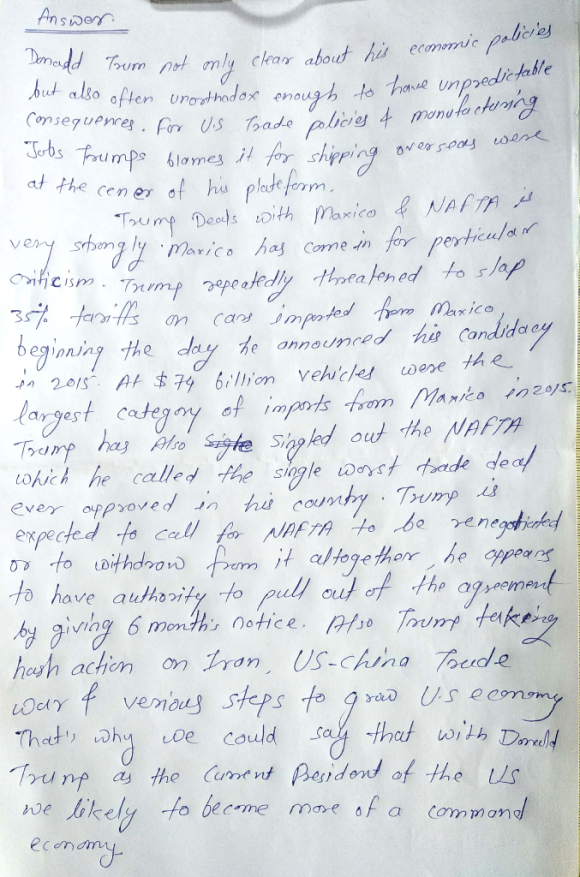 Answer.
Donadd Trum not only clear about his economic policies
but also often unorthodox enough to have unpredictable
consequences. For U.S Trade policies & manufacturing
Jobs Trumps blames it for shipping overseas were
at the cener of his plateform.
Trump Deals with Maxico & NAFTA is
very strongly. Maxico has come in for perticular
criticism. Trump repeatedly threatened to slap
35% tariffs on cars imported from Maxico,
beginning the day he announced his candidacy
in 2015. At $74 billion vehicles were the
largest category of imports from Maxico in 2015.
Trump has Also singled out the NAFTA
which he called the single worst trade deal
ever approved in his country. Trump is
expected to call for NAFTA to be renegotiated
or to withdraw from it altogether, he appears
to have authority to pull out of the agreement
by giving 6 month's notice. Also Trump takeing
hash action on Iran, US-China Trade
war & verious steps to grow U.S economy
That's why we could say that with Donald
Trump as the Current President of the US
we likely to become more of a command
economy